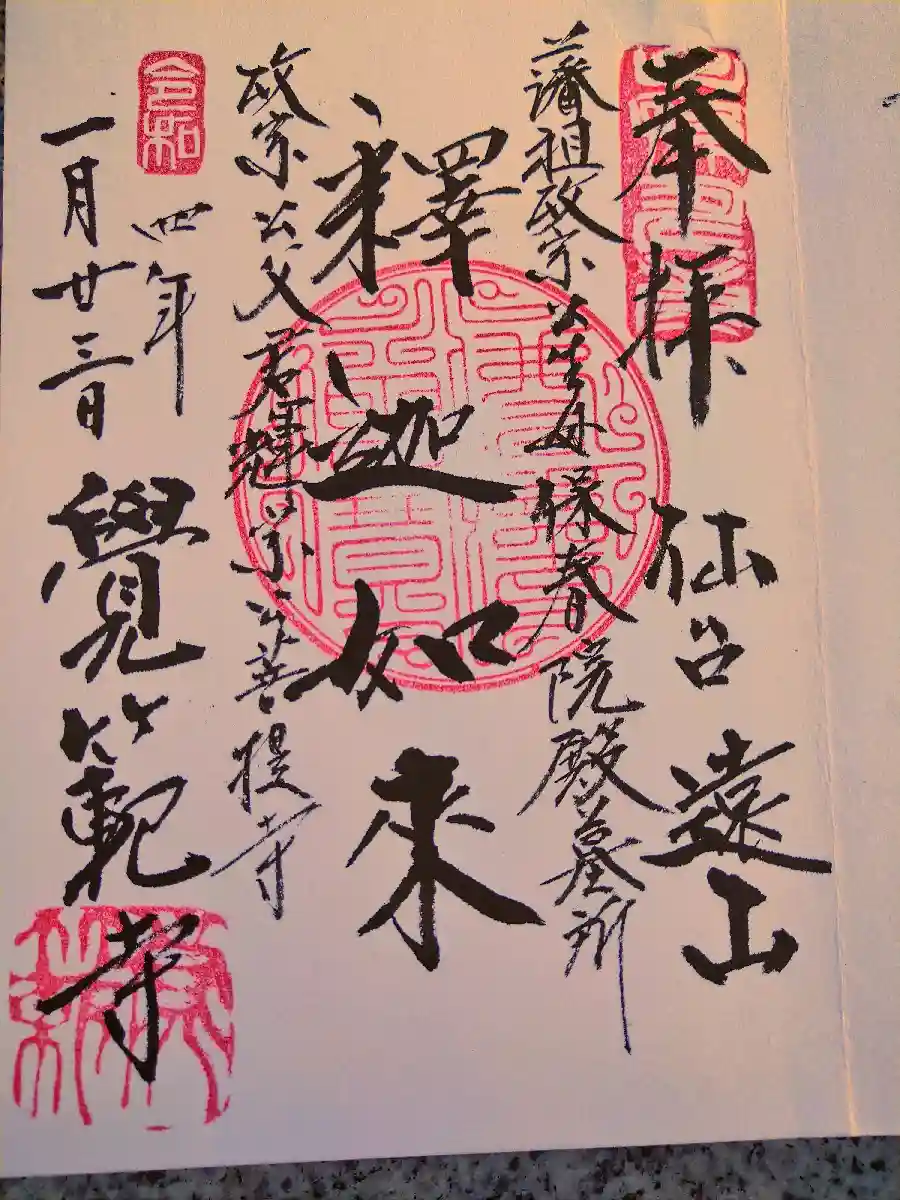 奉拝 仙台 遠山
藩祖政宗公生母保春院殿墓所
釋迦如来
政宗公父君輝宗公菩提寺
令和
四年
一月廿三日 覺範寺